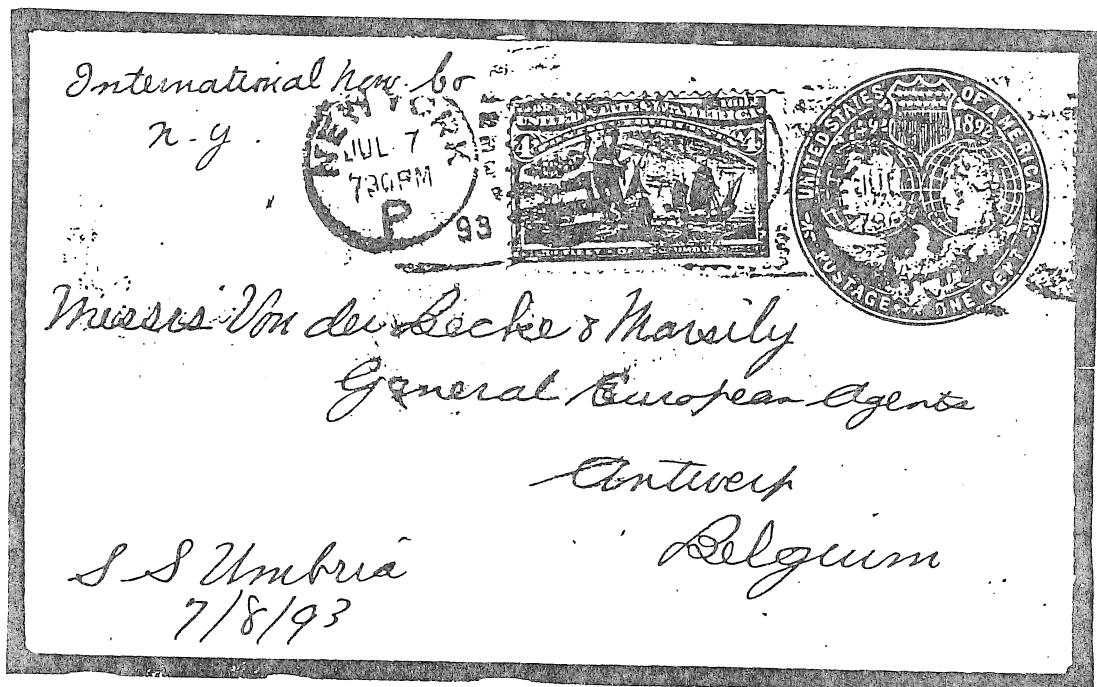 International Nav. Co
N.Y.
NEW YORK
JUL 7
730PM
P
93
4
4
UNITED STATES OF AMERICA
1492
1892
730
POSTAGE ONE CENT
Messrs Von der Becke & Marsily
General European Agents
Antwerp
Belgium
S S Umbria
7/8/93